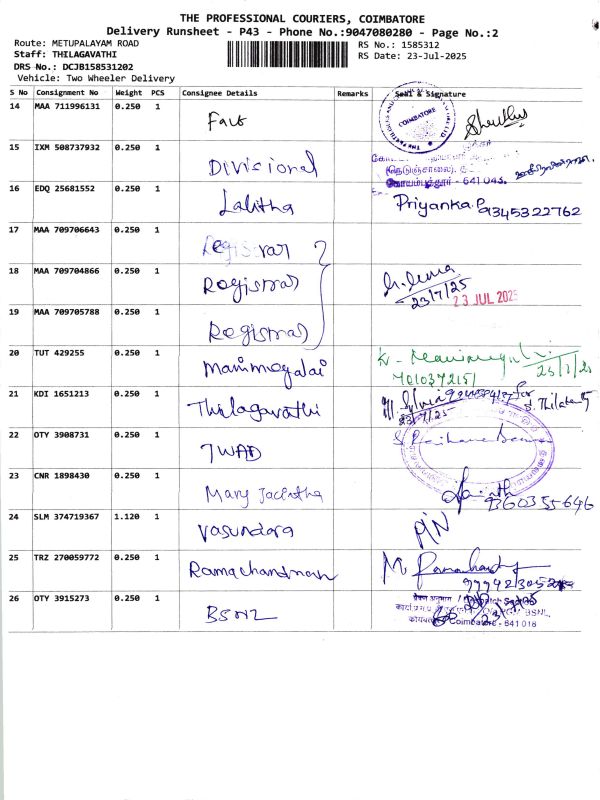 THE PROFESSIONAL COURIERS, COIMBATORE
Delivery Runsheet - P43 - Phone No.:9047080280 - Page No.:2
Route: METUPALAYAM ROAD
RS No.: 1585312
Staff: THILAGAVATHI
RS Date: 23-Jul-2025
DRS No.: DCJB158531202
Vehicle: Two Wheeler Delivery
S No Consignment No Weight PCS Consignee Details Remarks Seal & Signature
14 MAA 711996131 0.250 1
COIMBATORE
15 IXM 508737932 0.250 1 Divisional
கோயம்புத்தூர் - 641 043.
16 EDQ 25681552 0.250 1 Lalitha Priyanka.P 9345322762
17 MAA 709706643 0.250 1 Registrar
18 MAA 709704866 0.250 1 Registrar
23/7/25 23 JUL 2025
19 MAA 709705788 0.250 1 Registrar
20 TUT 429255 0.250 1 Manimegalai
7010372151
21 KDI 1651213 0.250 1 Thilagavathi for S. Thilaka
23/7/25
22 OTY 3908731 0.250 1 TWAD
23 CNR 1898430 0.250 1 Mary Jacintha
9360355646
24 SLM 374719367 1.120 1 Vasundara PIN
25 TRZ 270059772 0.250 1 Ramachandran
26 OTY 3915273 0.250 1 BSNL
BSNL
Coimbatore - 641 018